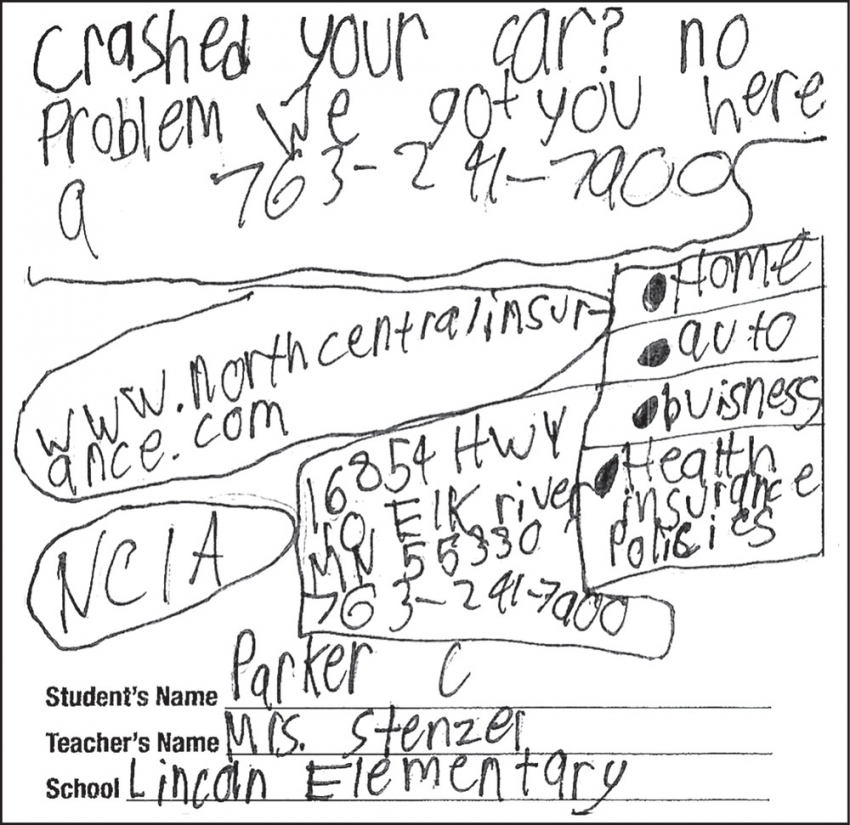 Crashed your car? no
Problem We got you here
a 763-241-7900
www.northcentralinsur-
ance.com
Home
auto
buisness
Health
insurance
Policies
16854 HWY
10 Elk river
MN 55330
763-241-7900
NCIA
Student's Name Parker C
Teacher's Name Mrs. Stenzel
School Lincoln Elementary